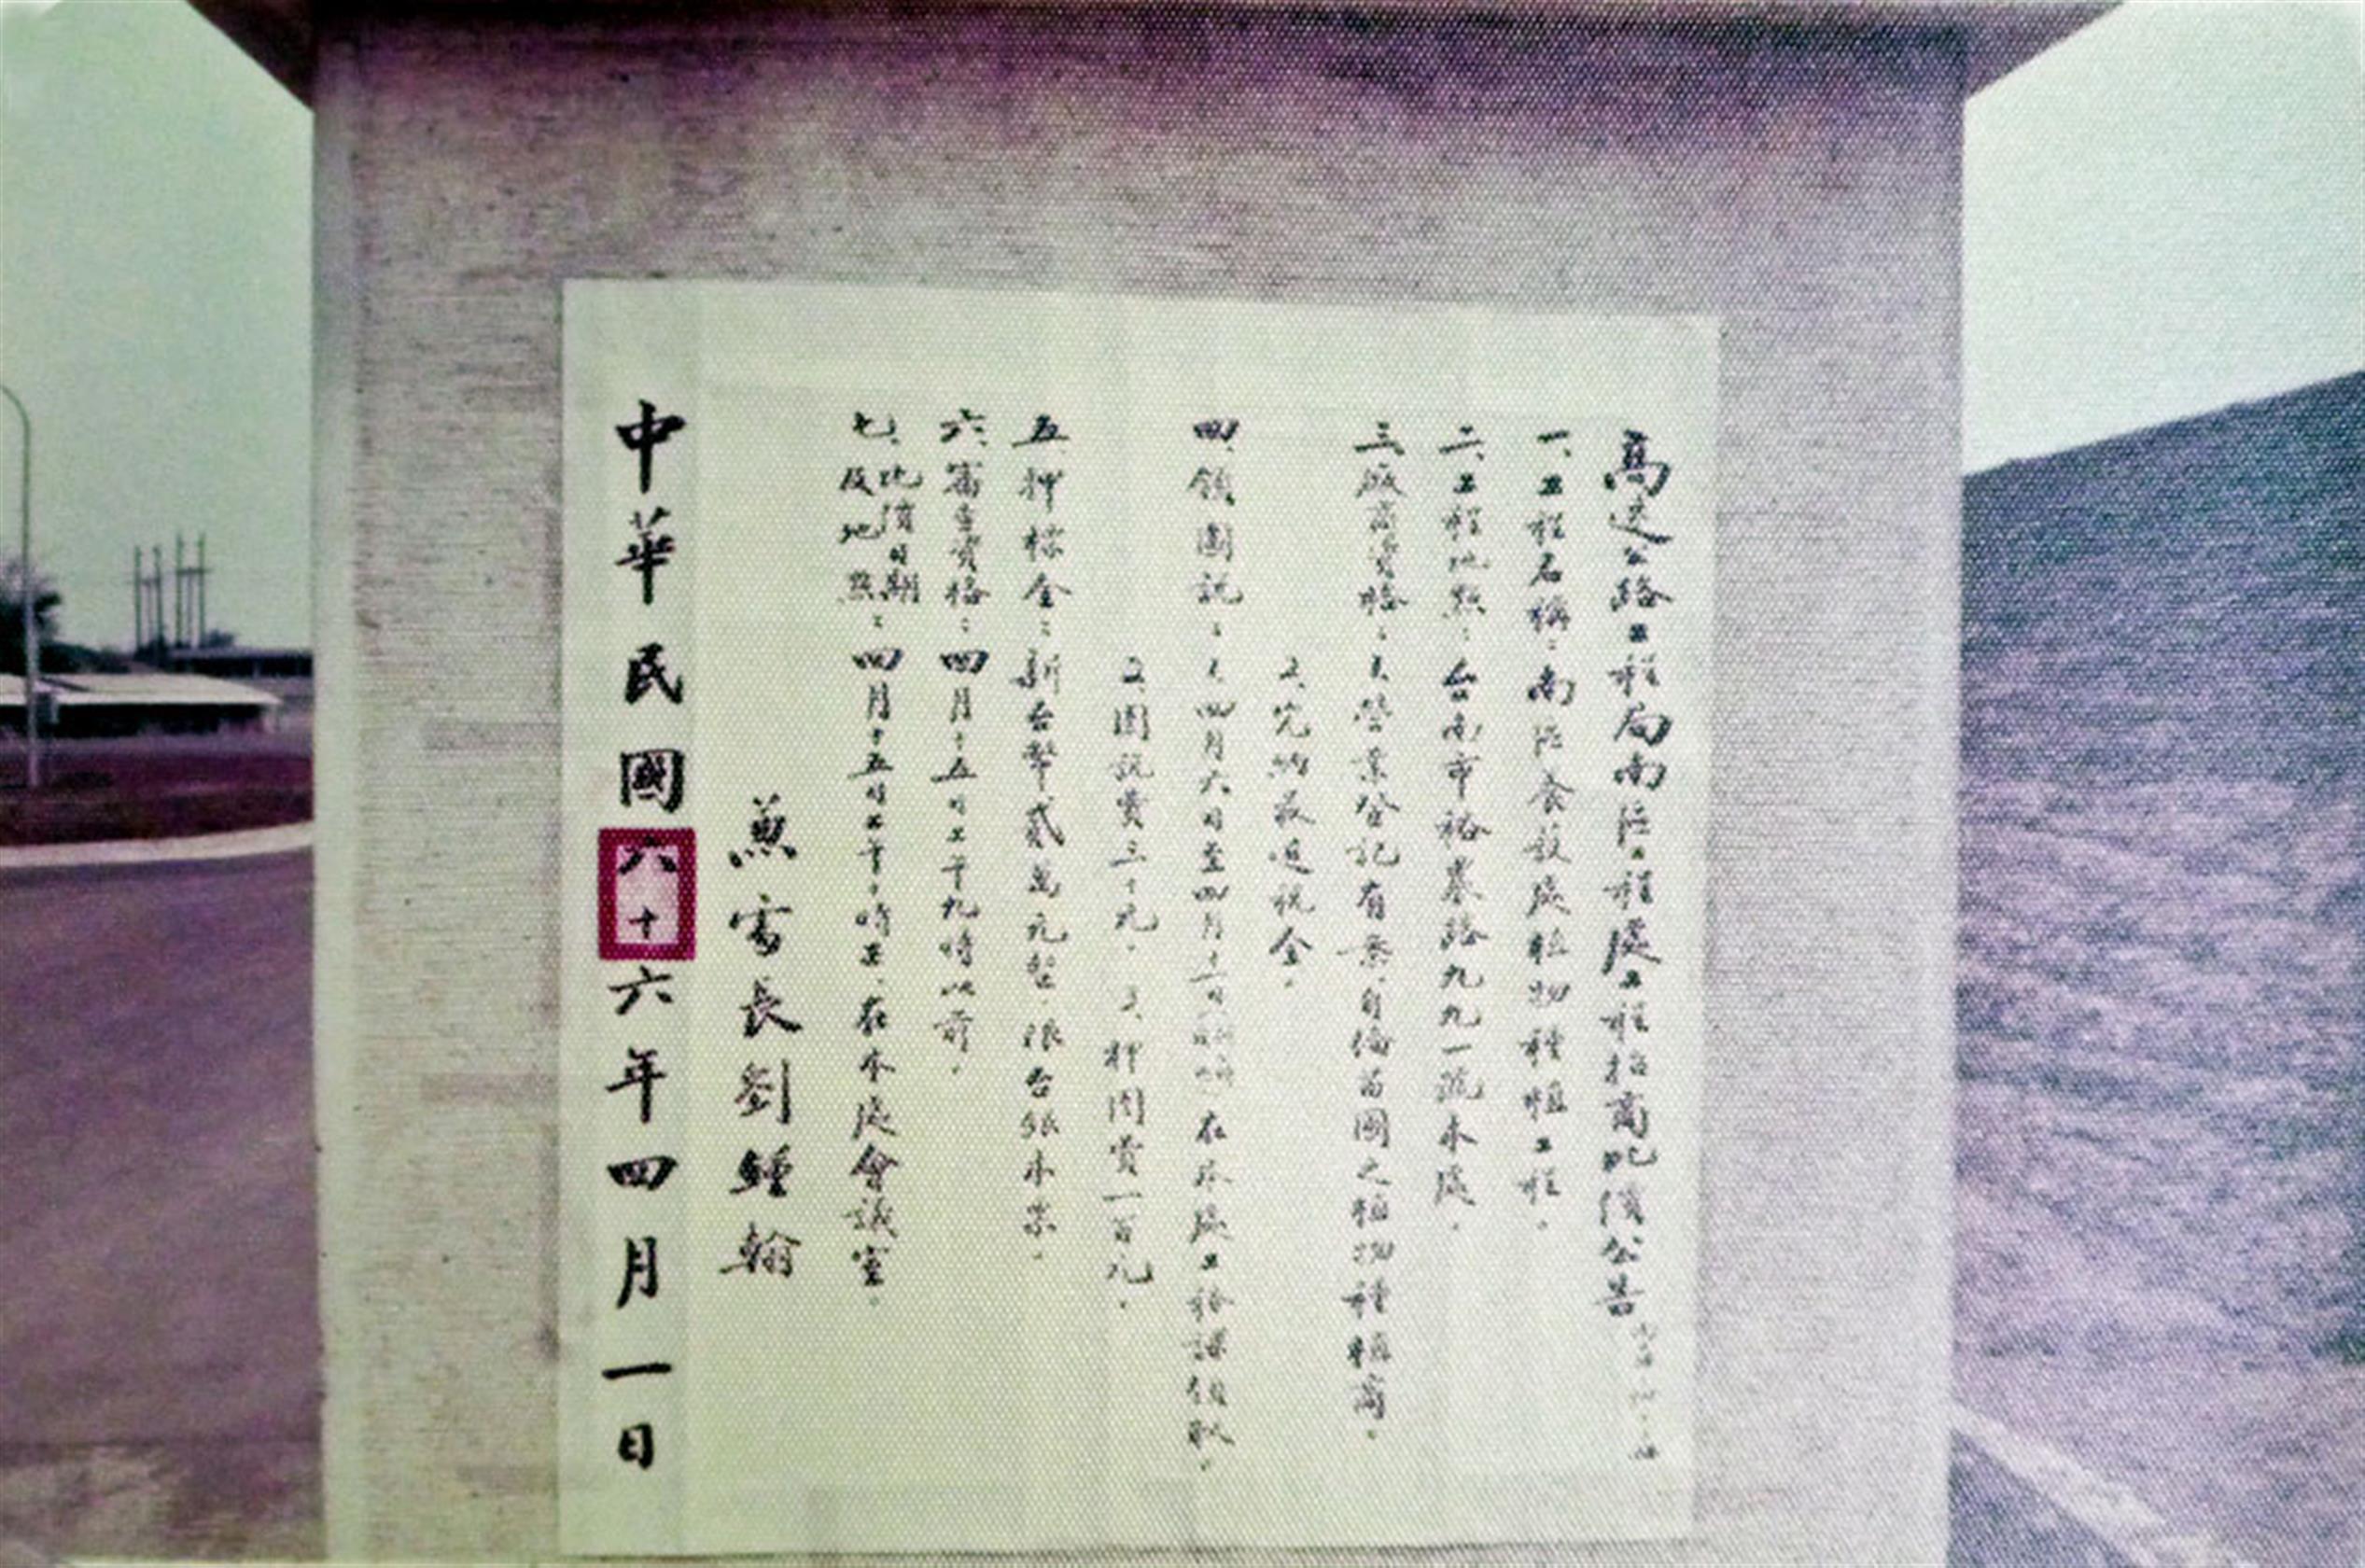 高速公路工程局南區工程處工程招商比價公告
一、工程名稱：南區養護處植物種植工程。
二、工程地點：台南市裕農路九九一號本處。
三、廠商資格：1.營業登記有案，自備苗圃之植物種植商。
2.完納最近稅金。
四、領圖說：1.四月六日至四月十二日 在本處工務課領取。
2.圖說費三十元。3.押圖費一百元。
五、押標金：新台幣貳萬元整，限台銀本票。
六、審查資格：四月十五日上午九時以前。
七、比價日期及地點：四月十五日上午十時正，在本處會議室。
兼處長劉鍾翰
中華民國六十六年四月一日